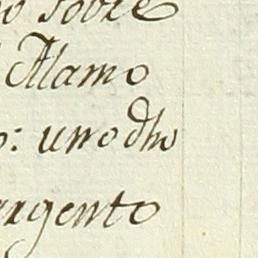 o sobre
Alamo
o: uno dho
argento